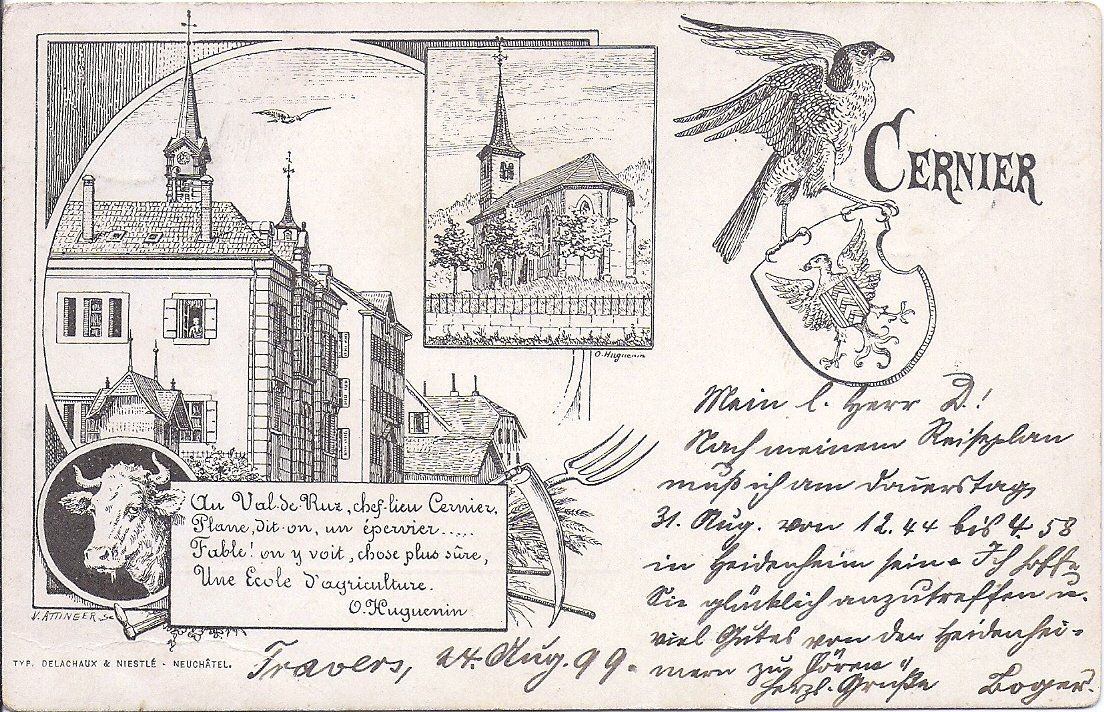 CERNIER
O. Huguenin
Au Val-de-Ruz, chef-lieu Cernier,
Plane, dit-on, un épervier.....
Fable! on y voit, chose plus sûre,
Une Ecole d'agriculture.
O. Huguenin
V. ATTINGER SC
TYP. DELACHAUX & NIESTLÉ - NEUCHÂTEL.
Mein l. Herr D!
Nach meinem Reiseplan
muß ich am Donerstag
31. Aug. von 12.44 bis 4.58
in Heidenheim sein. Ich hoffe
Sie glücklich anzutreffen u.
viel Gutes von den Heidenhei-
mern zu hören u
herzl. Grüße Boger.
Travers, 24. Aug. 99.